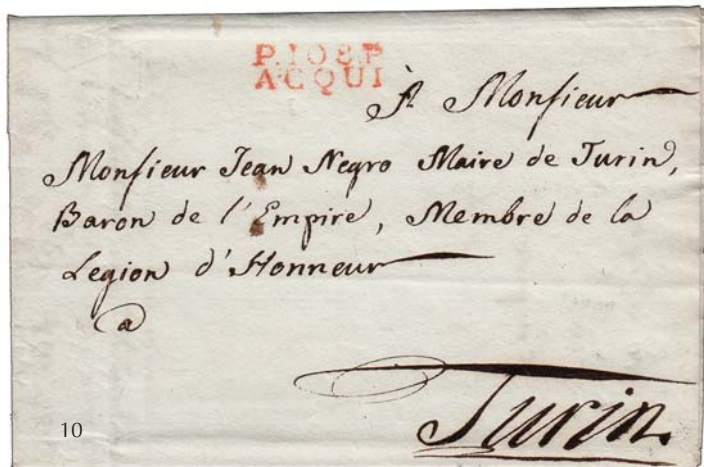 P.108.P
ACQUI
À Monsieur
Monsieur Jean Negro Maire de Turin,
Baron de l'Empire, Membre de la
Legion d'Honneur
a
Turin.
10